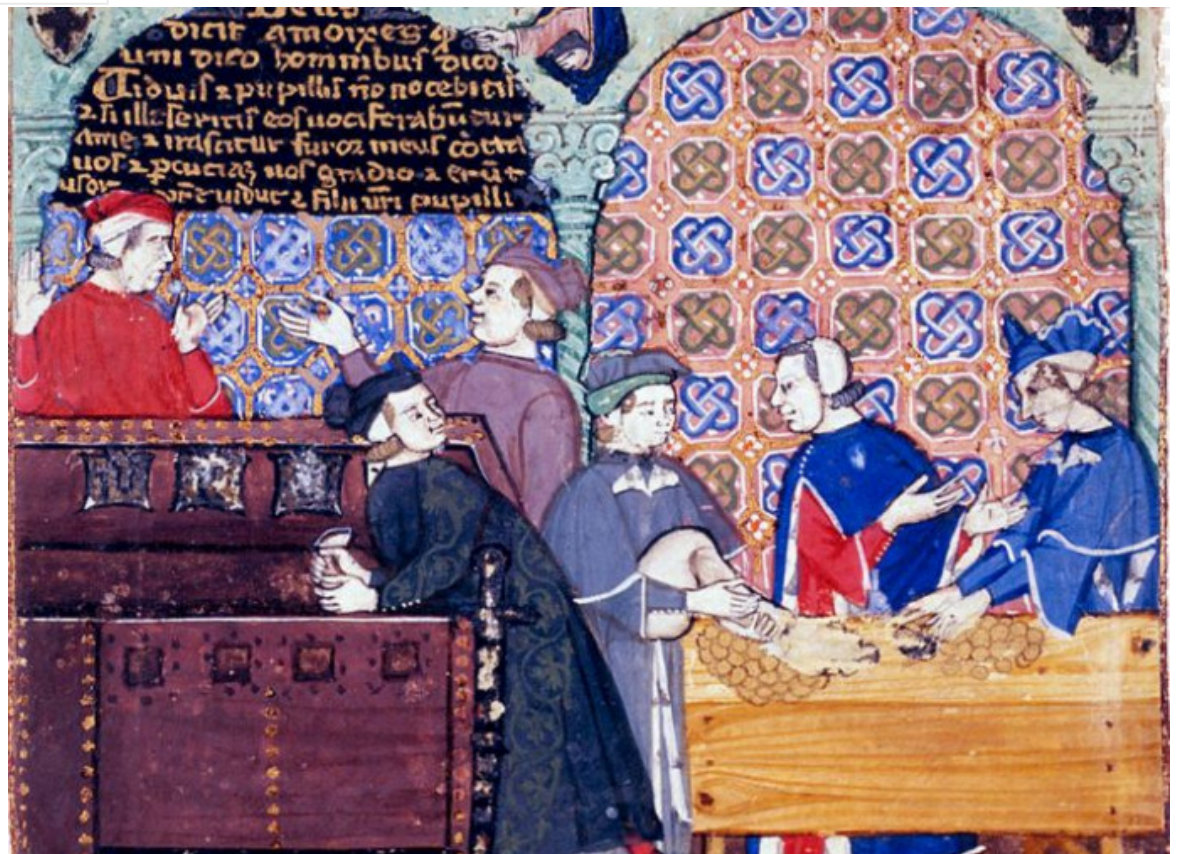 dicit amoixes q
uni dico hominibus dico
Uiduis ⁊ pupillis no nocebitis
⁊ si illeseritis eos uociferabūtur
ame ⁊ irascitur furoꝛ meus cōtra
uos ⁊ ꝑcuciaꝫ uos gladio ⁊ erūt
uidue ⁊ filii uri pupilli